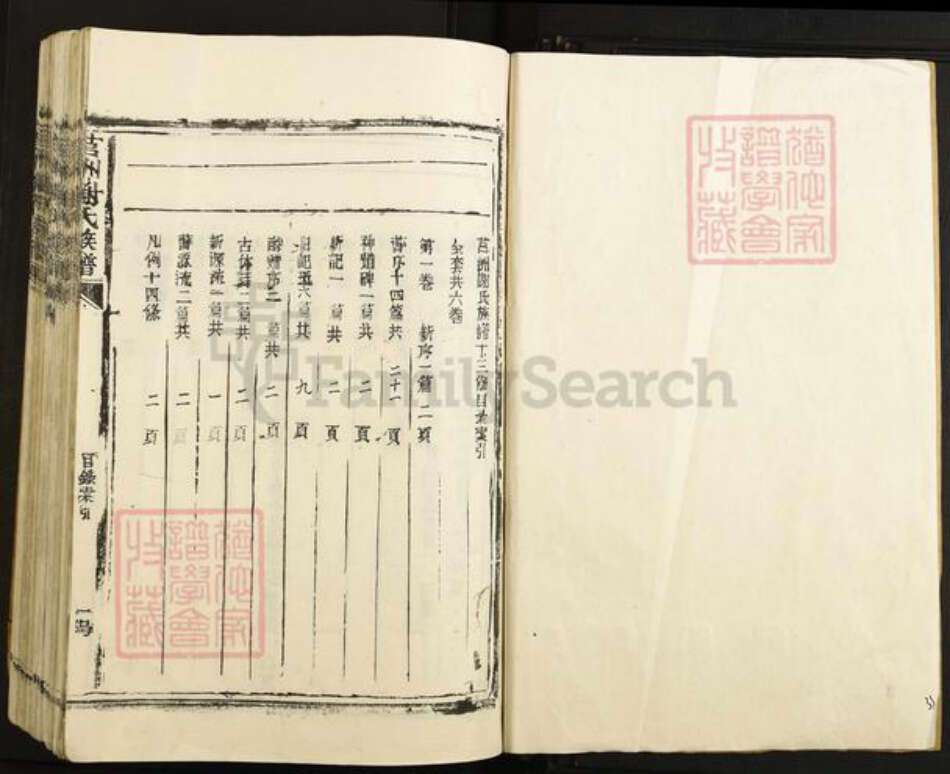 莒洲謝氏族譜十三修目錄索引
全套共六卷
第一卷 新序一篇 二頁
舊序十四篇共 二十一頁
神道碑一篇共 二頁
新記一篇共 二頁
舊記五六篇共 九頁
壽序二篇共 二頁
古体詩二篇共 二頁
新源流一篇共 一頁
舊源流二篇共 二頁
凡例十四條 二頁
莒州謝氏族譜
目錄索引
一號
猶他家譜學會收藏
猶他家譜學會收藏
FamilySearch
31